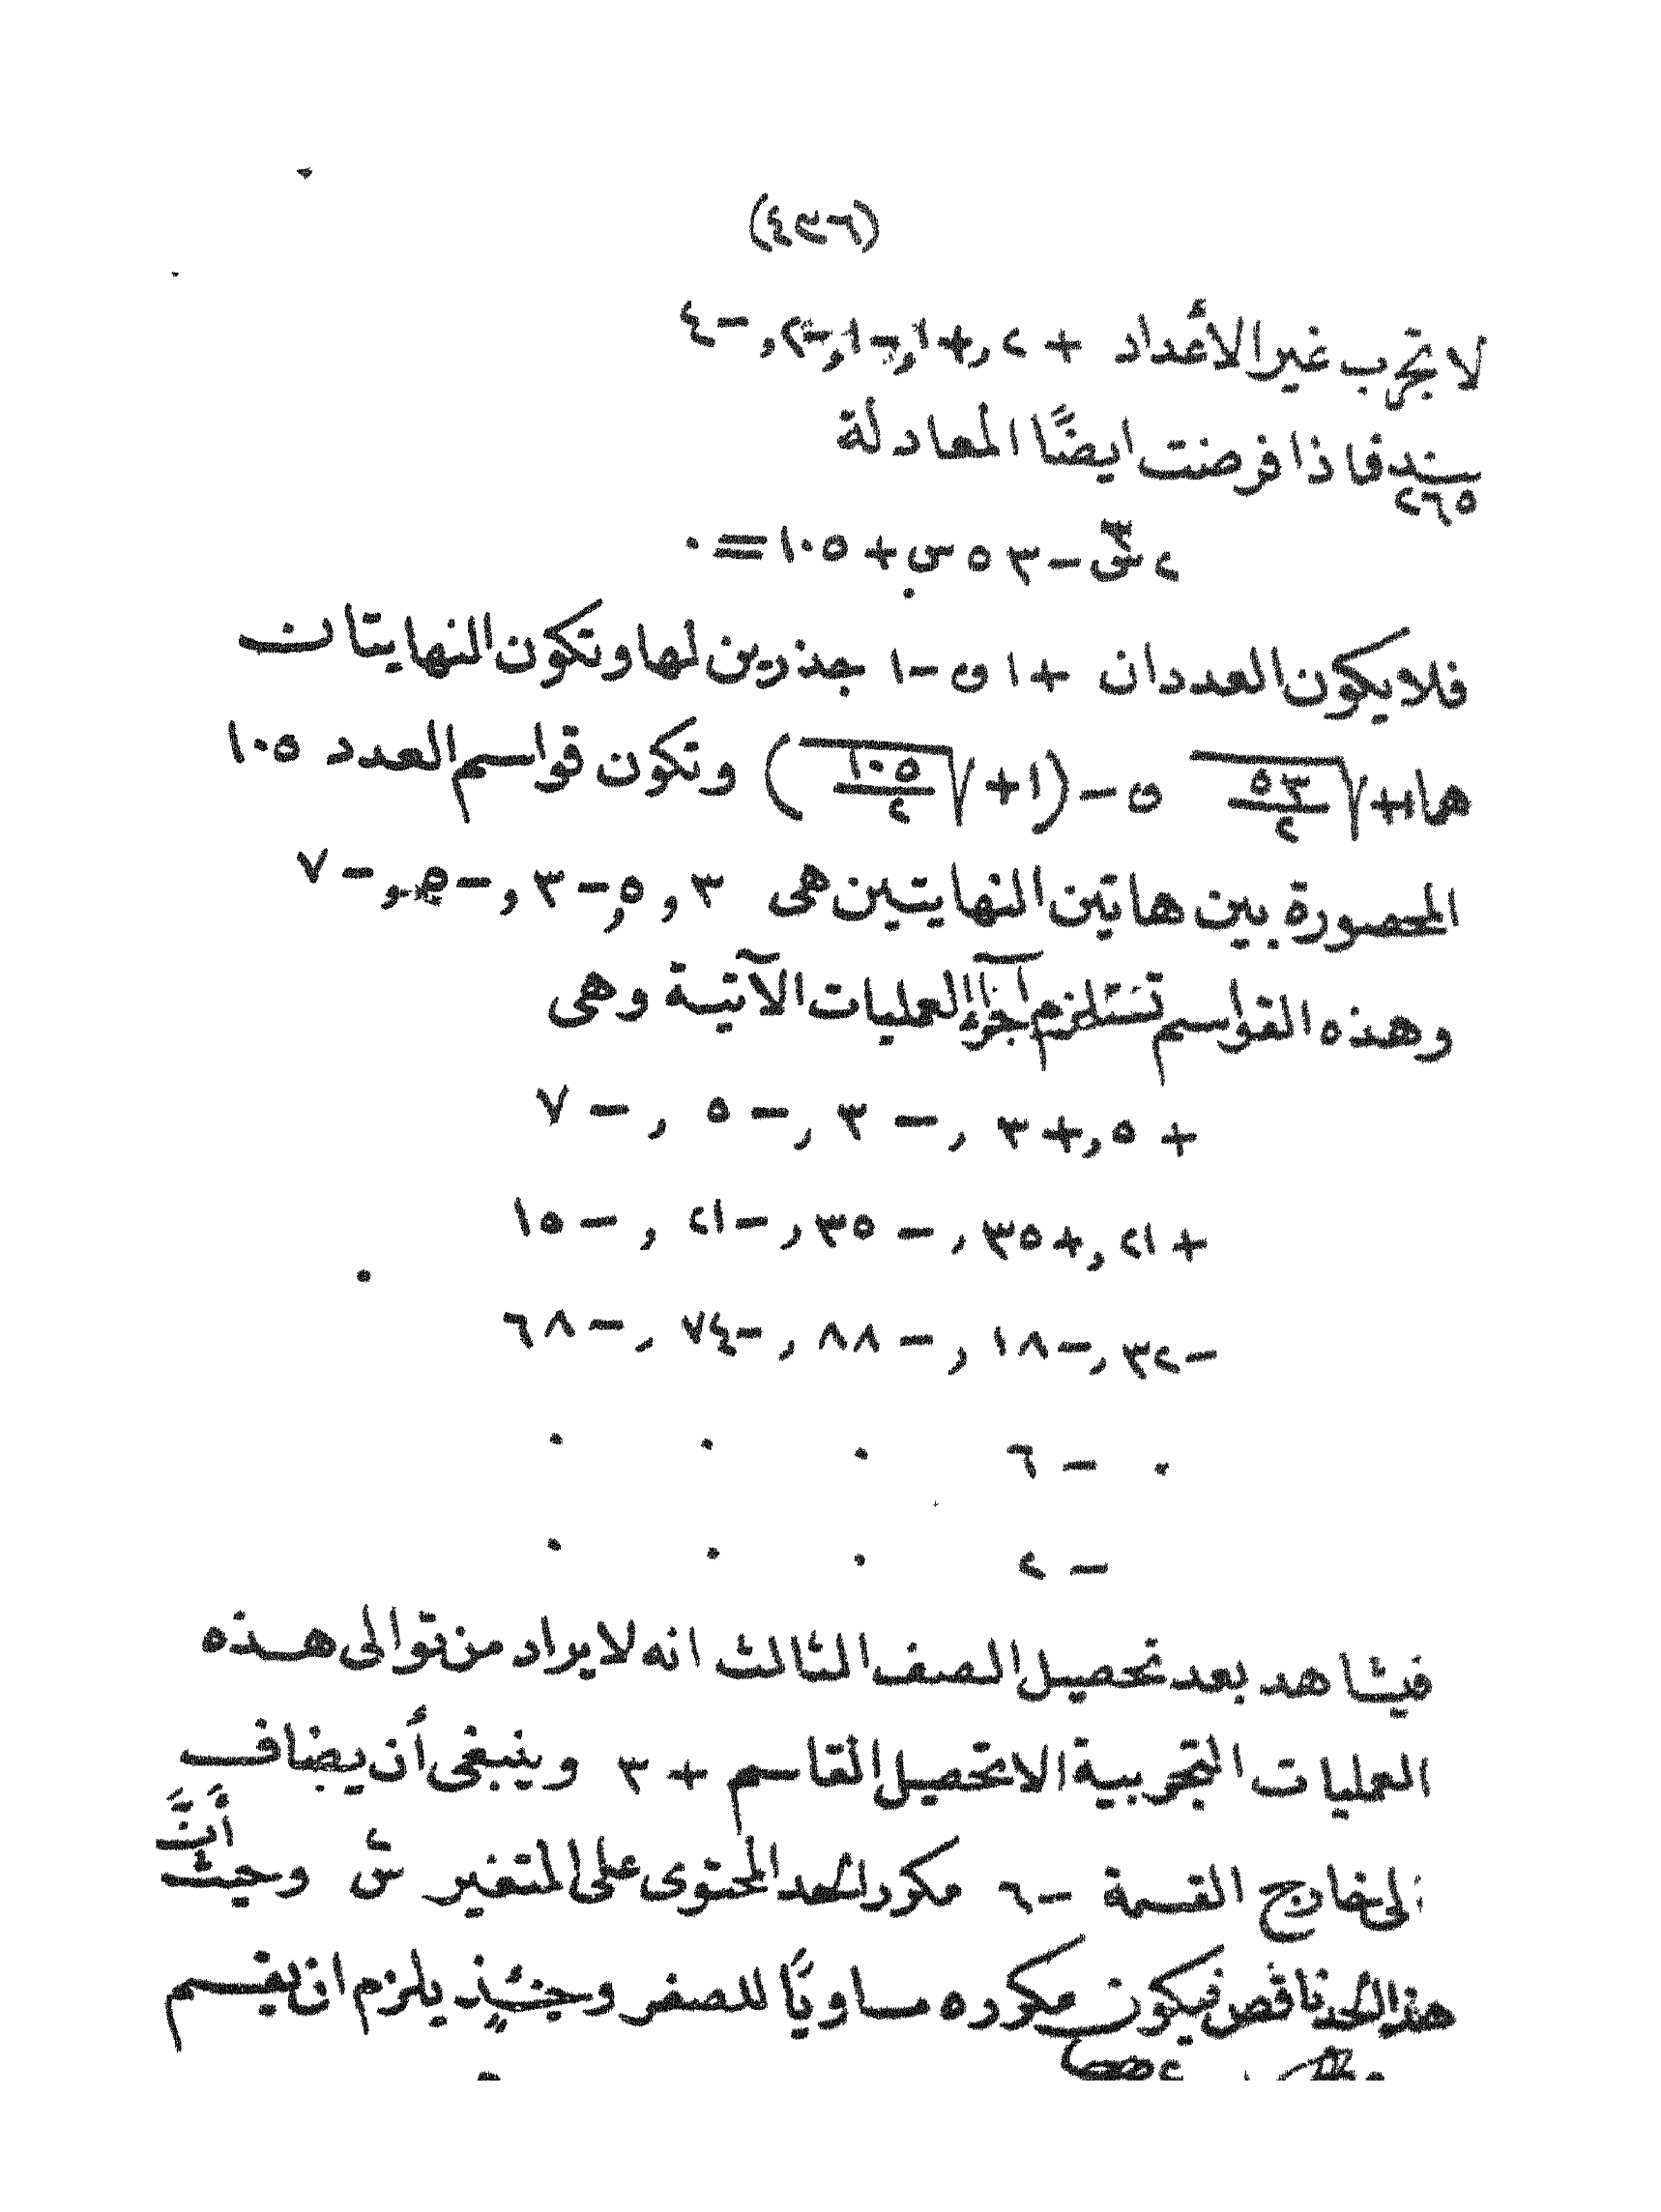 (٤٩٦)
لا تجرب غير الأعداد + ٢ , + ١ , - ١ , - ٢ , - ٤
سند فاذا فرضت ايضًا المعادلة
٢٦٥
٢ س٣ - ٥٣ س + ١٠٥ = ٠
فلا يكون العددان + ١ و - ١ جذرين لها وتكون النهايتان
هما ١ + √٥٣/٢ و - (١ + √١٠٥/٢) وتكون قواسم العدد ١٠٥
المحصورة بين هاتين النهايتين هى ٣ , ٥ , - ٣ , - ٥ , - ٧
وهذه القواسم تستلزم اجراء العمليات الآتية وهى
+ ٥ , + ٣ , - ٣ , - ٥ , - ٧
+ ٢١ , + ٣٥ , - ٣٥ , - ٢١ , - ١٥
- ٣٢ , - ١٨ , - ٨٨ , - ٧٤ , - ٦٨
٠ - ٦ ٠ ٠ ٠
- ٢ ٠ ٠ ٠
فيشاهد بعد تحصيل الصف الثالث انه لا يراد من توالى هذه
العمليات التجريبية الا تحصيل القاسم + ٣ وينبغى أن يضاف
الى خارج القسمة - ٦ مكرر الحد المحتوى على المتغير س٢ وحيث أنَّ
هذا الحد ناقص فيكون مكرره مساويًا للصفر وحينئذٍ يلزم ان يقسم